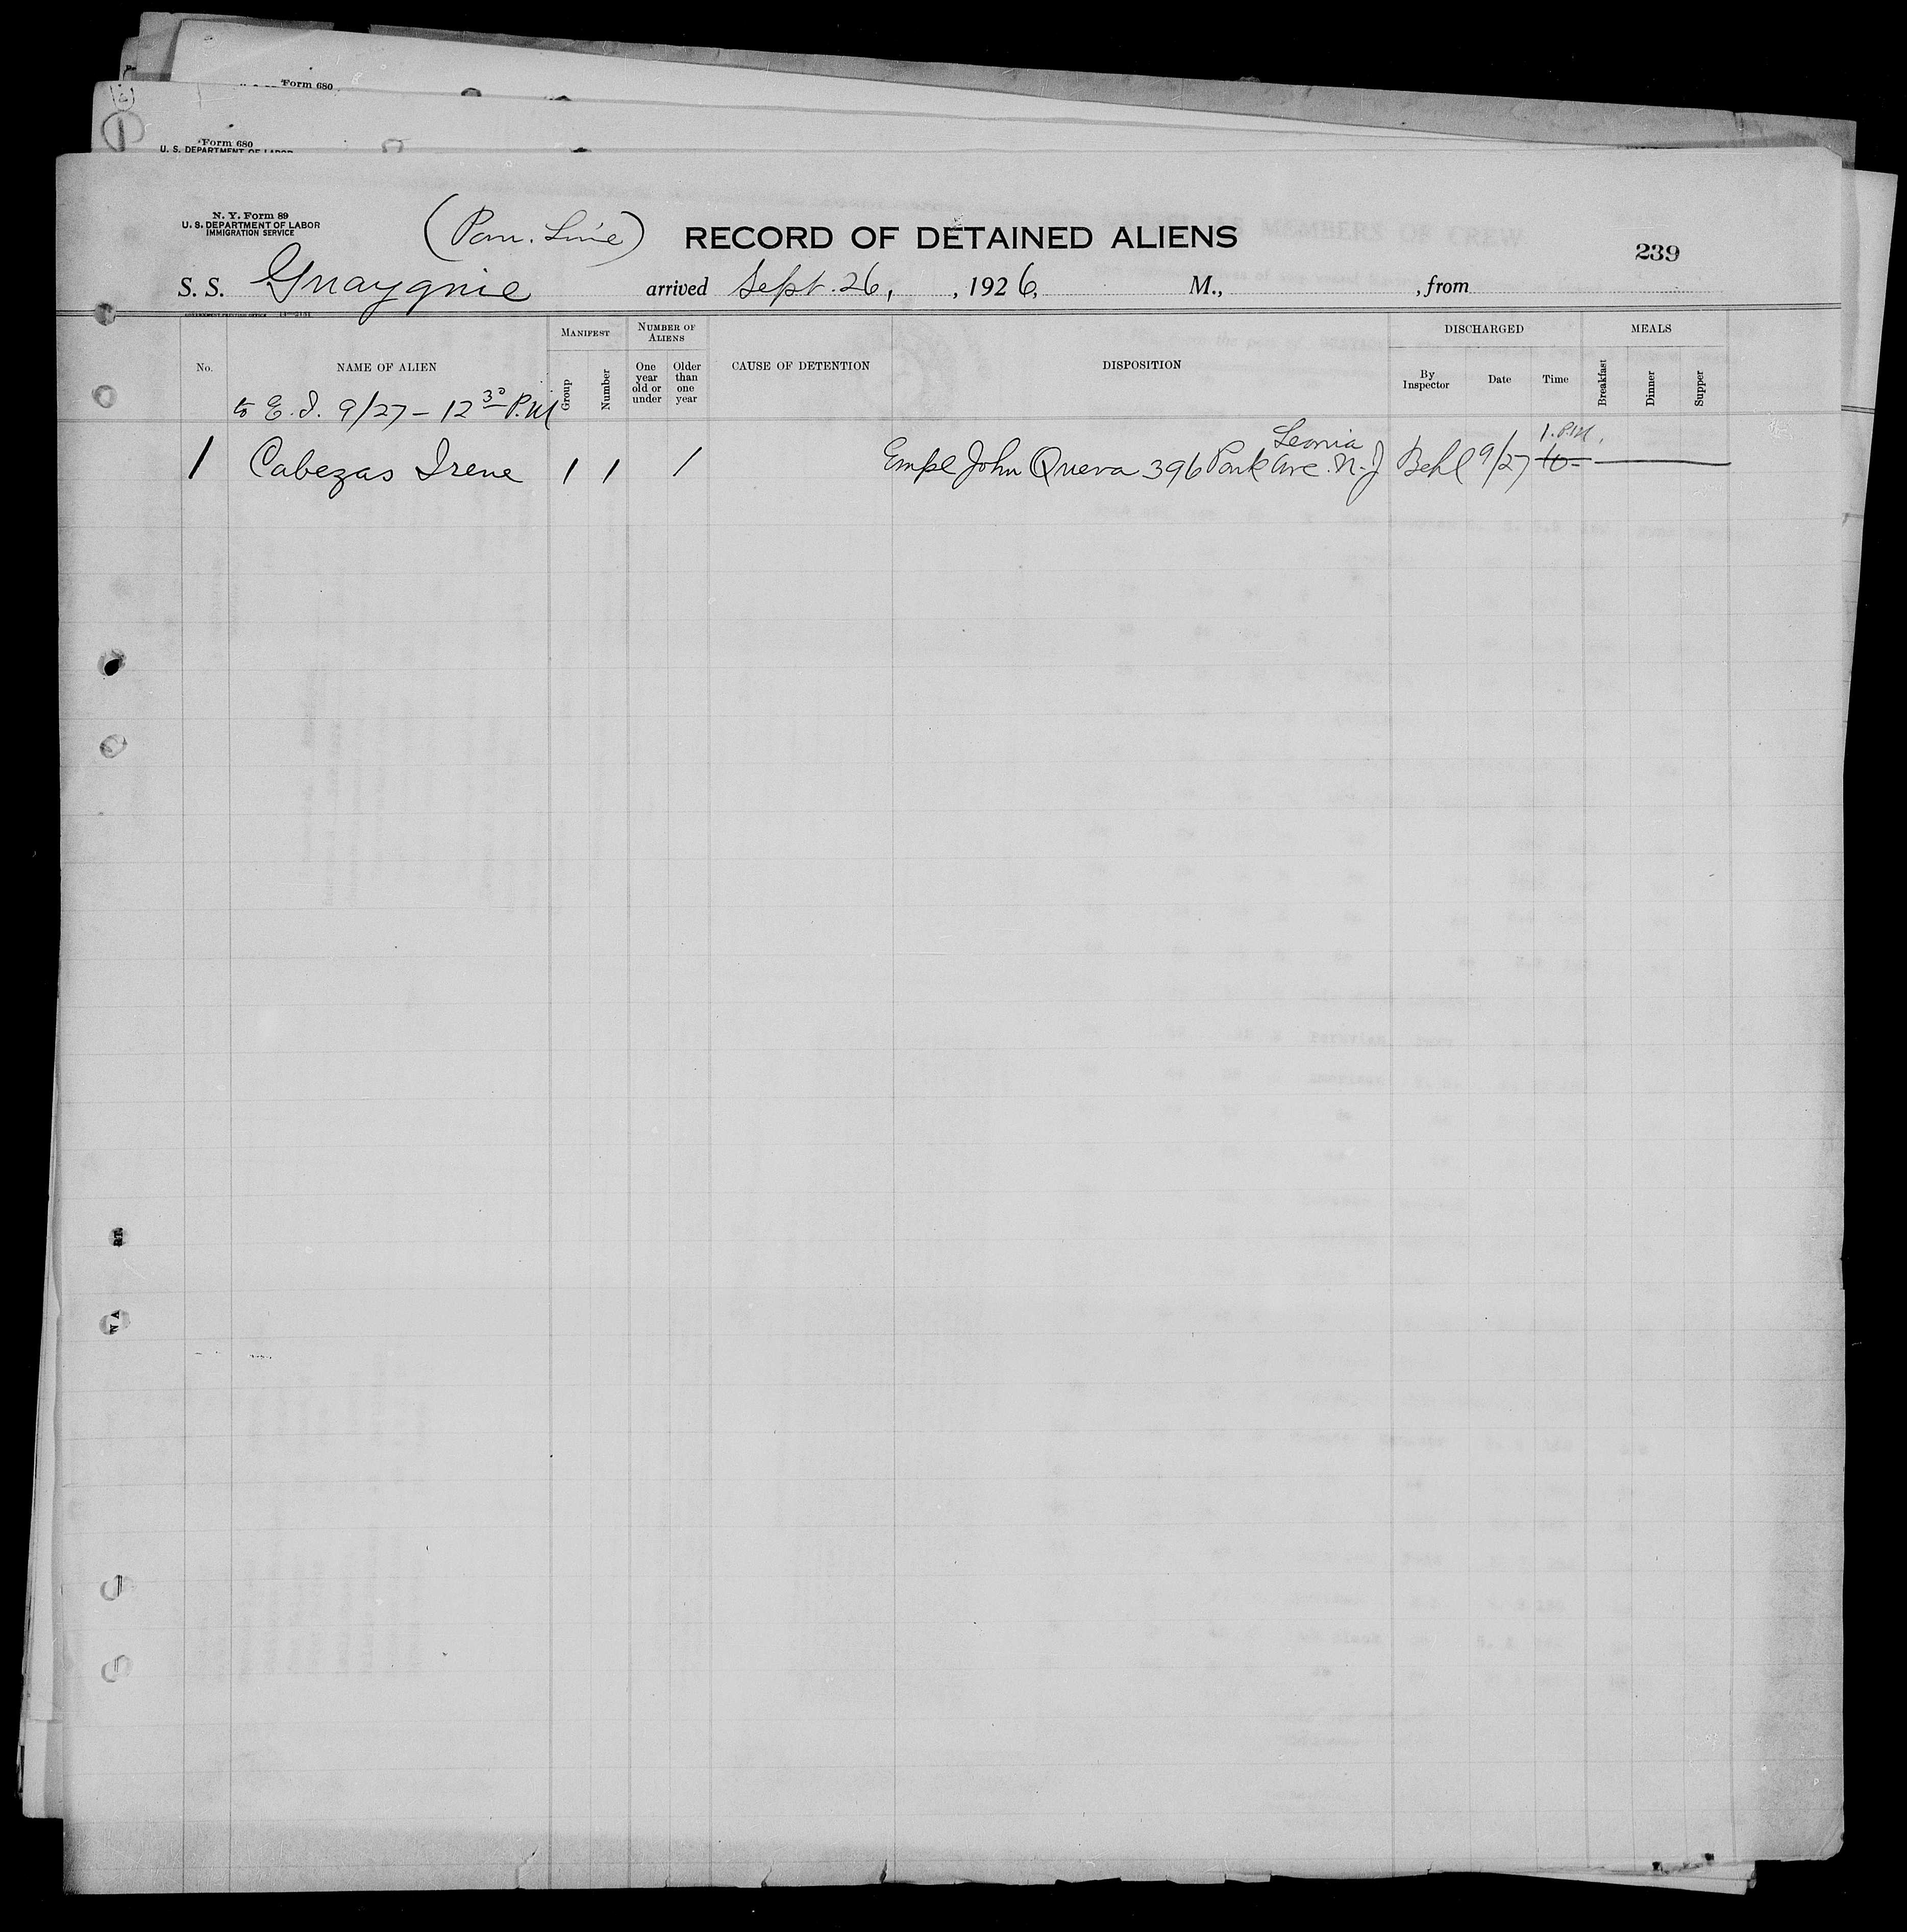 Form 680
Form 680
U. S. DEPARTMENT OF LABOR
N. Y. Form 89
U. S. DEPARTMENT OF LABOR
IMMIGRATION SERVICE
(Pam. Line)
RECORD OF DETAINED ALIENS
239
S. S. Guayquie arrived Sept. 26, , 1926, M., , from
No.
NAME OF ALIEN
MANIFEST
Group
Number
NUMBER OF ALIENS
One year old or under
Older than one year
CAUSE OF DETENTION
DISPOSITION
DISCHARGED
By Inspector
Date
Time
MEALS
Breakfast
Dinner
Supper
to E. I. 9/27 - 12 30 P.M
1 Cabezas Irene 1 1 1 Empl John Queva 396 Park Ave Leonia N-J Behl 9/27 1. P.M.